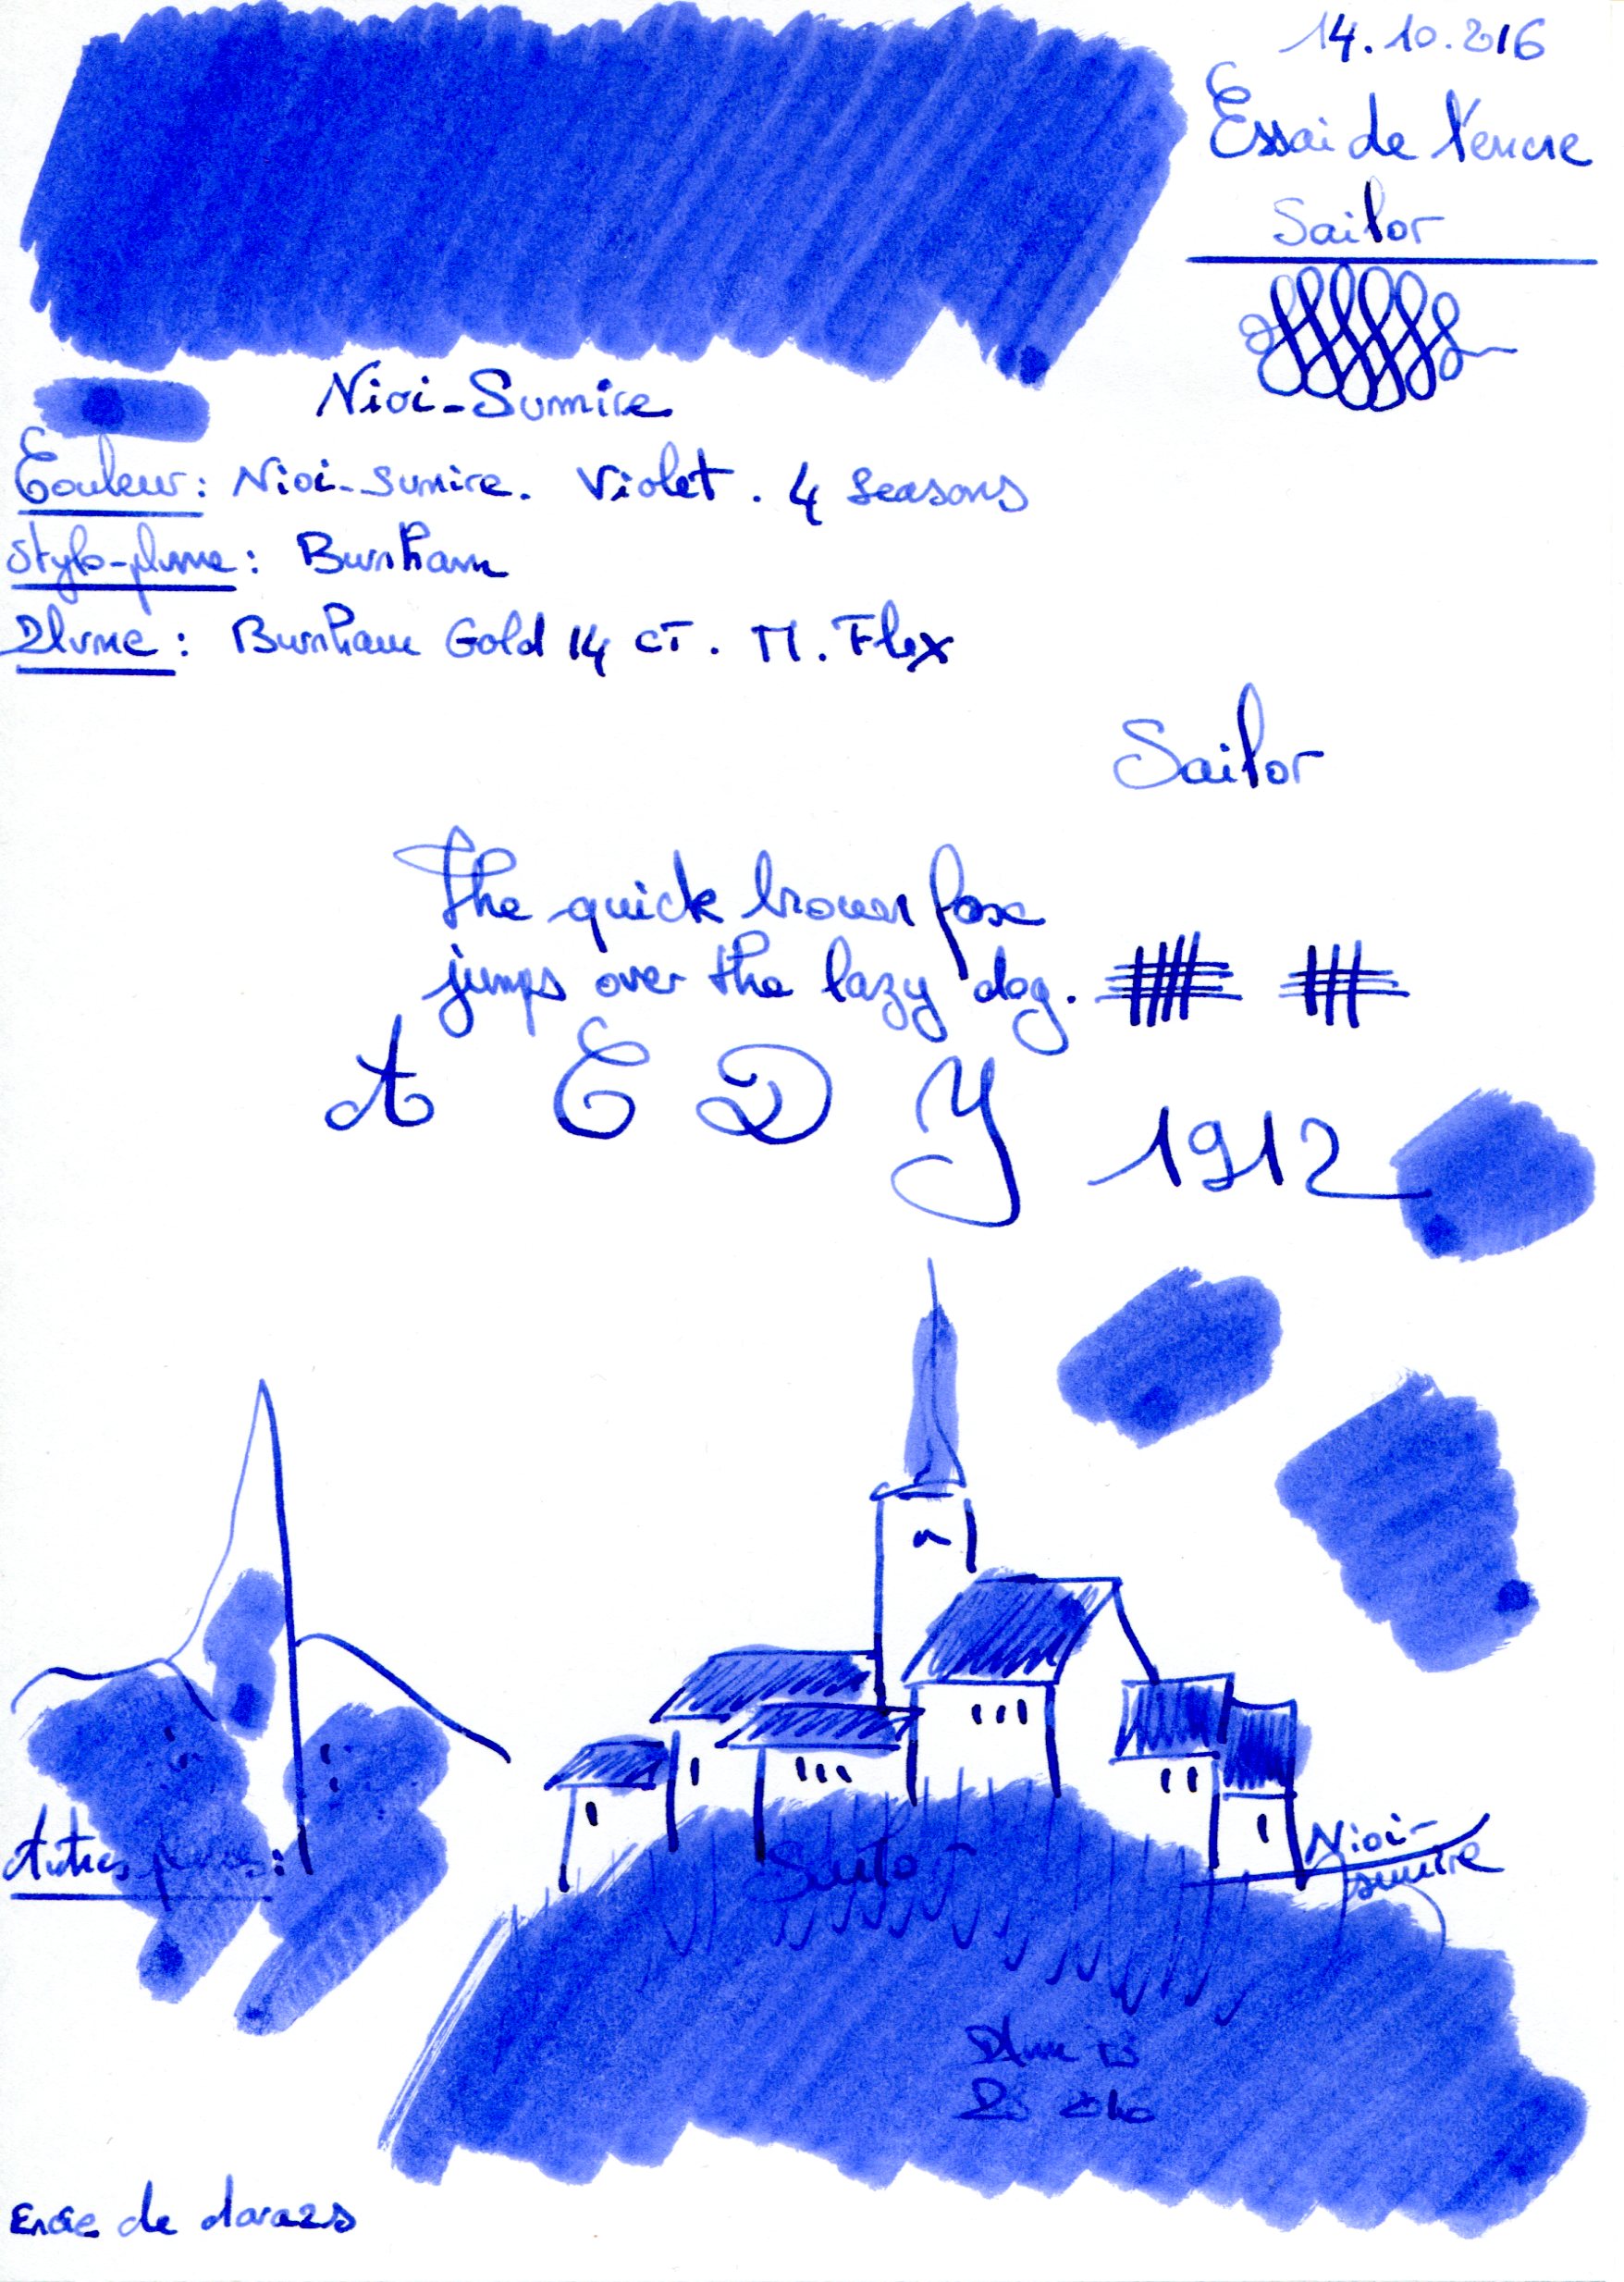 14.10.2016
Essai de l'encre
Sailor
Nioi-Sumire
Couleur: Nioi-Sumire. Violet. 4 Seasons
Stylo-plume: Burnham
Plume: Burnham Gold 14 CT. M. Flex
Sailor
The quick brown fox
jumps over the lazy dog.
A E D Y 1912
Autres plumes:
Sailor
Nioi-
sumire
Encre de